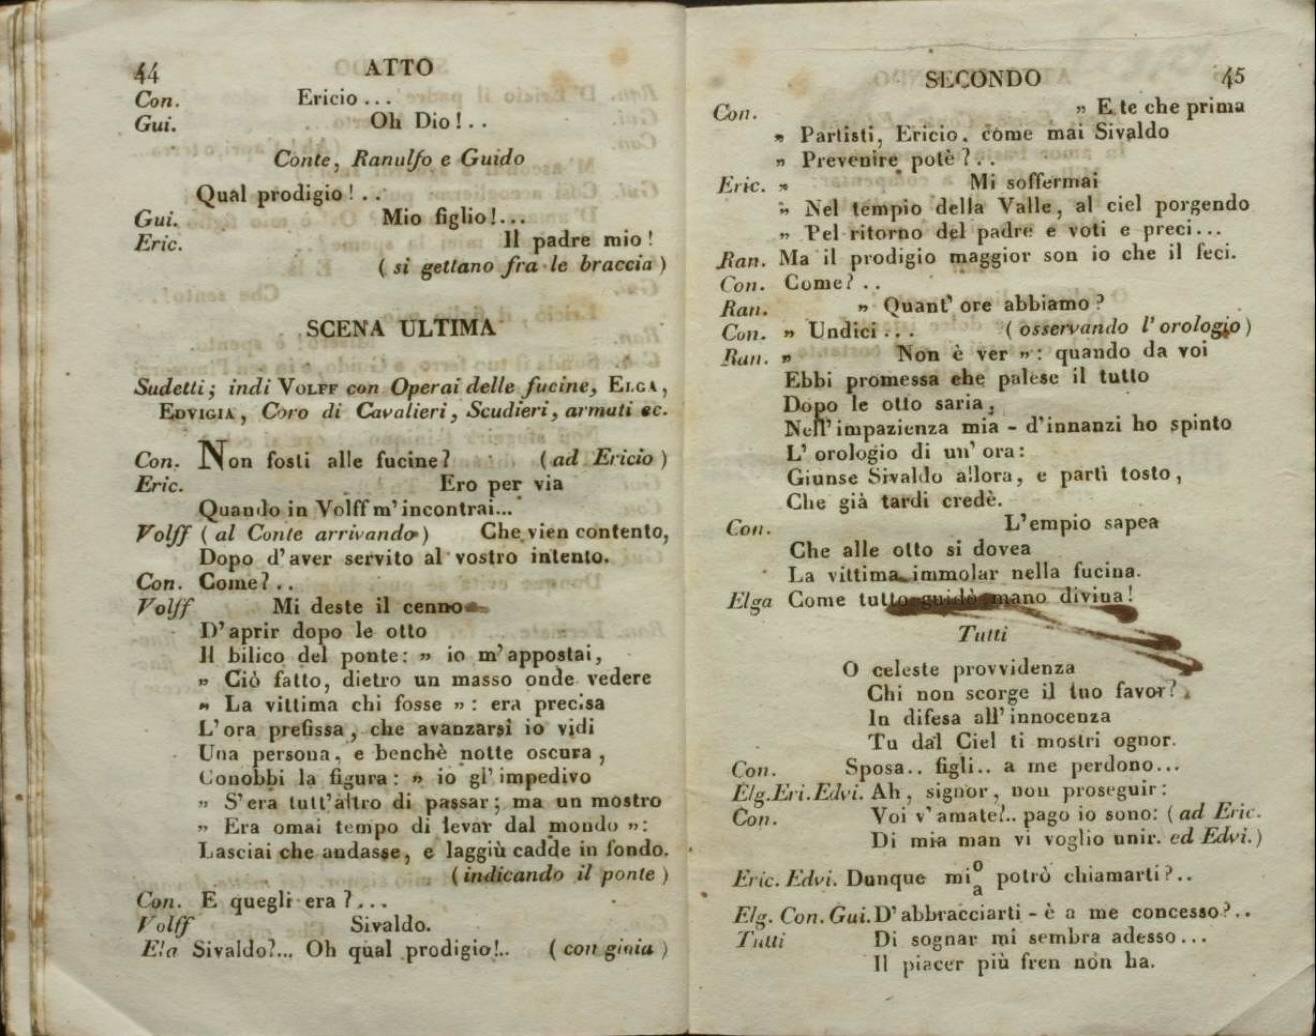 44 ATTO
Con. Ericio ...
Gui. Oh Dio!..
Conte, Ranulfo e Guido
Qual prodigio!..
Gui. Mio figlio!...
Eric. Il padre mio!
(si gettano fra le braccia)
SCENA ULTIMA
Sudetti; indi VOLFF con Operai delle fucine, ELGA,
EDVIGIA, Coro di Cavalieri, Scudieri, armati ec.
Con. Non fosti alle fucine? (ad Ericio)
Eric. Ero per via
Quando in Volff m'incontrai...
Volff (al Conte arrivando) Che vien contento,
Dopo d'aver servito al vostro intento.
Con. Come?..
Volff Mi deste il cenno
D'aprir dopo le otto
Il bilico del ponte: „ io m'appostai,
„ Ciò fatto, dietro un masso onde vedere
„ La vittima chi fosse „: era precisa
L'ora prefissa, che avanzarsi io vidi
Una persona, e benchè notte oscura,
Conobbi la figura: „ io gl'impedivo
„ S'era tutt'altro di passar; ma un mostro
„ Era omai tempo di levar dal mondo „:
Lasciai che andasse, e laggiù cadde in fondo.
(indicando il ponte)
Con. E quegli era?...
Volff Sivaldo.
Ela Sivaldo?... Oh qual prodigio!.. (con gioia)
SECONDO 45
Con. „ E te che prima
„ Partisti, Ericio. come mai Sivaldo
„ Prevenire potè?..
Eric. „ Mi soffermai
„ Nel tempio della Valle, al ciel porgendo
„ Pel ritorno del padre e voti e preci...
Ran. Ma il prodigio maggior son io che il feci.
Con. Come?..
Ran. „ Quant'ore abbiamo?
Con. „ Undici... (osservando l'orologio)
Ran. „ Non è ver „: quando da voi
Ebbi promessa che palese il tutto
Dopo le otto saria,
Nell'impazienza mia - d'innanzi ho spinto
L'orologio di un'ora:
Giunse Sivaldo allora, e partì tosto,
Che già tardi credè.
Con. L'empio sapea
Che alle otto si dovea
La vittima immolar nella fucina.
Elga Come tutto guidò mano divina!
Tutti
O celeste provvidenza
Chi non scorge il tuo favor?
In difesa all'innocenza
Tu dal Ciel ti mostri ognor.
Con. Sposa.. figli.. a me perdono...
Elg.Eri.Edvi. Ah, signor, non proseguir:
Con. Voi v'amate?.. pago io sono: (ad Eric.
Di mia man vi voglio unir. ed Edvi.)
Eric. Edvi. Dunque mi o/a potrò chiamarti?..
Elg. Con. Gui. D'abbracciarti - è a me concesso?..
Tutti Di sognar mi sembra adesso...
Il piacer più fren non ha.